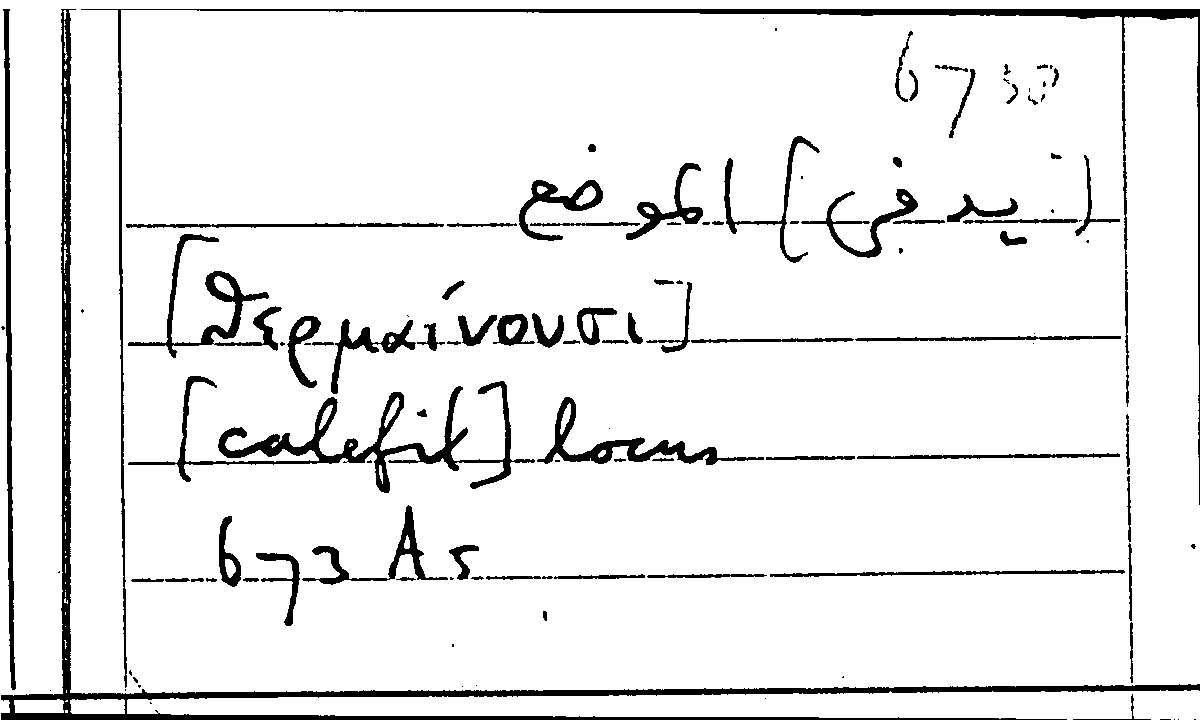 [يدفى] الموضع
[θερμαίνουσι]
[calefit] locus
673 A 5